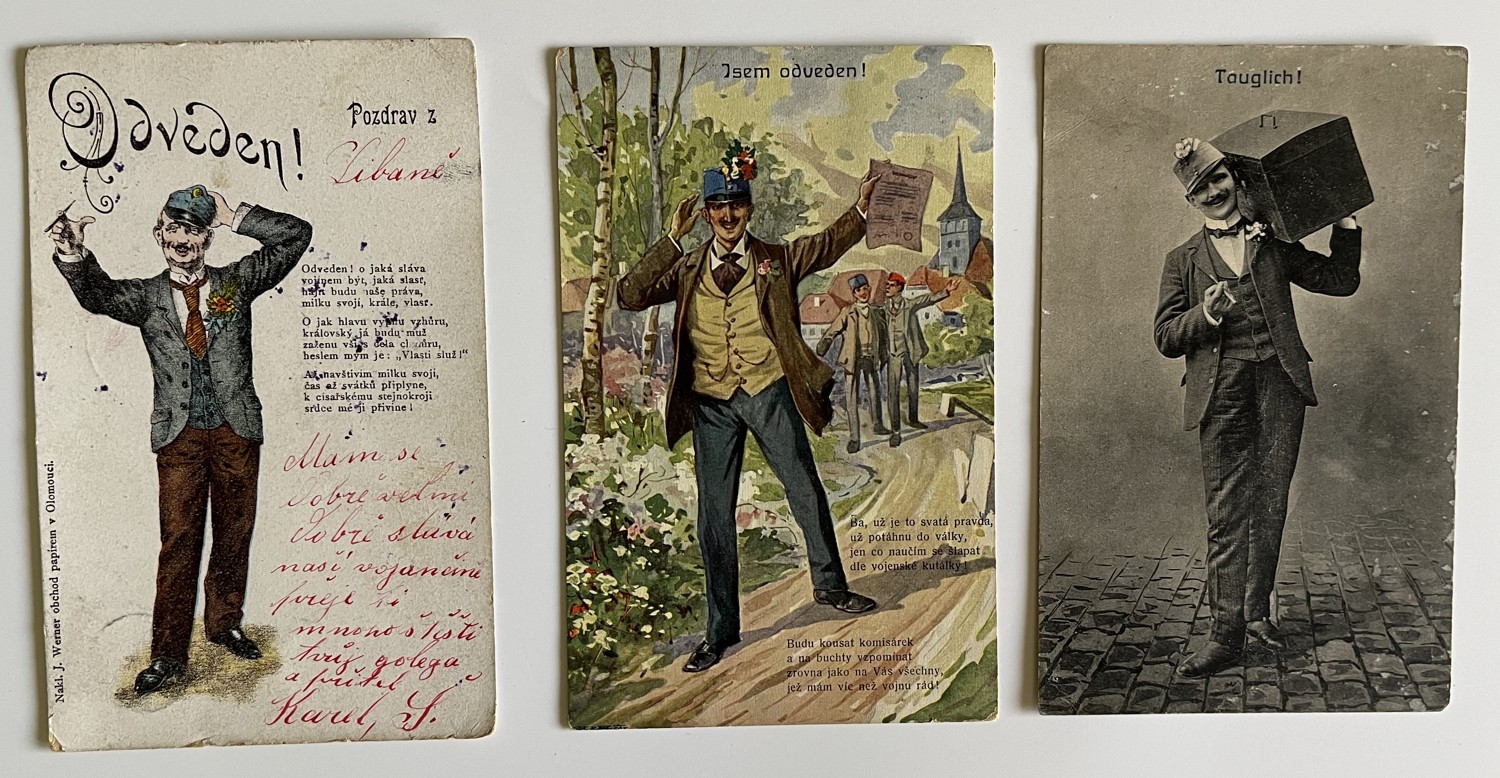 Odveden!
Pozdrav z
Libaně
Odveden! o jaká sláva
vojínem být, jaká slast,
hájit budu naše práva,
milku svoji, krále, vlast.
O jak hlavu vypnu vzhůru,
královský já budu muž
zaženu vši s čela chmůru,
heslem mým je: „Vlasti služ!“
Až navštívím milku svoji,
čas až svátků připlyne,
k císařskému stejnokroji
srdce mé ji přivine!
Mám se
dobře velmi
dobře sláva
naší vojančině
přeje ti
mnoho štěstí
tvůj golega
a přítel
Karel, S.
Nakl. J. Werner obchod papírem v Olomouci.
Jsem odveden!
Ba, už je to svatá pravda,
už potáhnu do války,
jen co naučím se šlapat
dle vojenské kutálky!
Budu kousat komisárek
a na buchty vzpomínat
zrovna jako na Vás všechny,
jež mám víc než vojnu rád!
Tauglich!